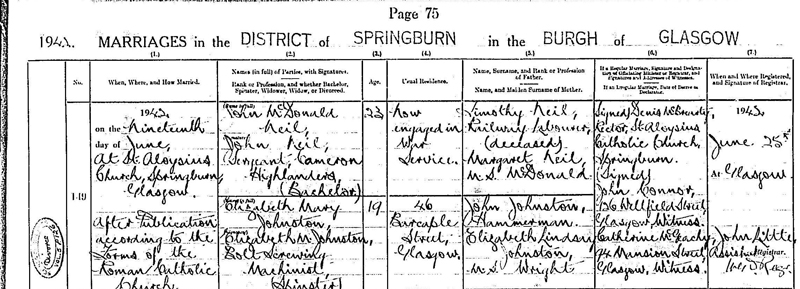 Page 75
194 MARRIAGES in the DISTRICT of SPRINGBURN in the BURGH of GLASGOW
(1.) (2.) (3.) (4.) (5.) (6.) (7.)
No.
When, Where, and How Married.
Names (in full) of Parties, with Signatures.
Rank or Profession, and whether Bachelor,
Spinster, Widower, Widow, or Divorced.
Age.
Usual Residence.
Name, Surname, and Rank or Profession
of Father.
Name, and Maiden Surname of Mother.
If a Regular Marriage, Signature and Designation
of Officiating Minister or Registrar, and
Signatures and Addresses of Witnesses.
If an Irregular Marriage, Date of Decree or
Declarator.
When and Where Registered,
and Signature of Registrar.
149
1942,
on the Nineteenth
day of June,
At St. Aloysius
Church, Springburn,
Glasgow.
After Publication
according to the
Forms of the
Roman Catholic
Church
John McDonald
Neil,
John Neil,
Sergeant, Cameron
Highlanders,
(Bachelor)
23
Now
engaged in
War
Service.
Timothy Neil,
Railway Labourer,
(deceased)
Margaret Neil,
M.S. McDonald.
Elizabeth Mary
Johnston,
Elizabeth M. Johnston,
Bolt Screwing
Machinist,
(Spinster)
19
46
Street,
Glasgow.
John Johnston,
Hammerman.
Elizabeth Lindsay
Johnston,
M.S. Wright
(Signed) Denis
Rector, St. Aloysius
Catholic Church,
Springburn.
(Signed)
John Connor,
Wellfield Street,
Glasgow, Witness.
Catherine McGeachy,
94 Mansion Street,
Glasgow, Witness.
1942,
June 25th
At Glasgow.
John Little
Assistant Registrar.